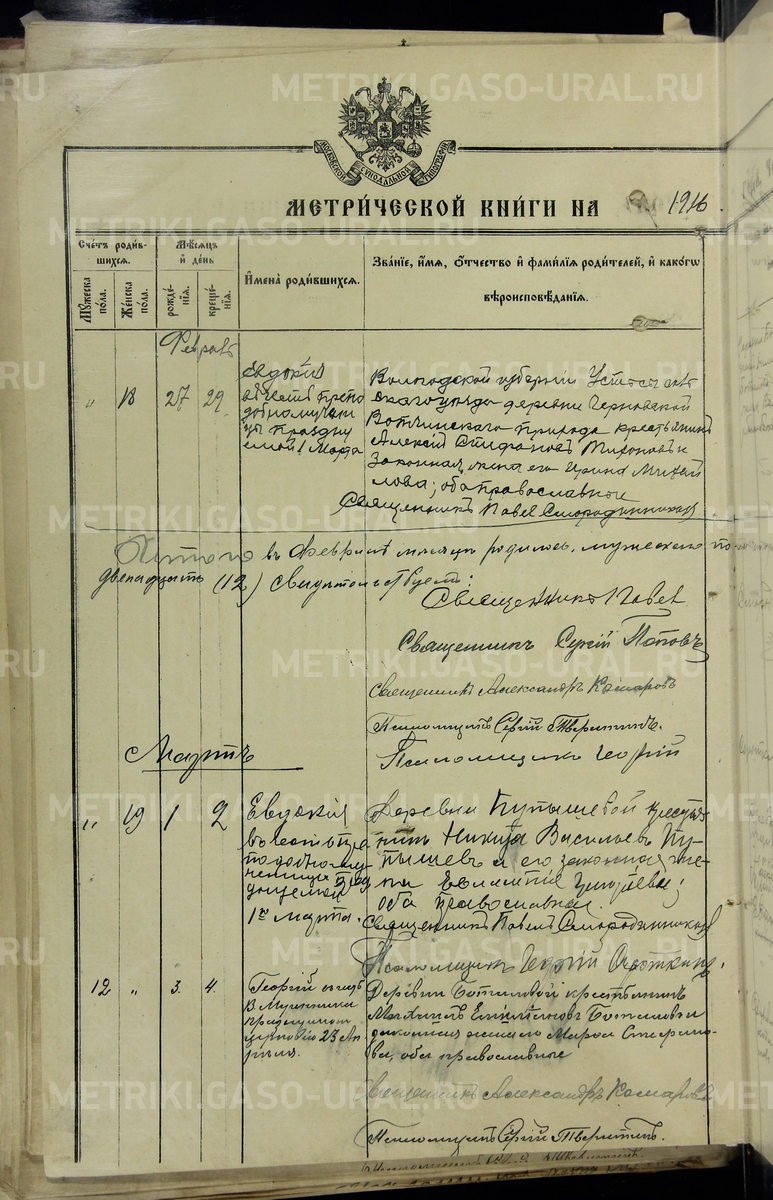 METRIKI.GASO-URAL.RU
МОСКОВСКОЙ СѴНОДАЛЬНОЙ ТИПОГРАФІИ
МЕТРИ́ЧЕСКОЙ КНИ́ГИ НА 1916
Сче́тъ роди́вшихся.
Мꙋ́жеска по́ла.
Же́нска по́ла.
Мѣ́сяцъ и҆ де́нь
рожде́нїѧ.
креще́нїѧ.
И҆мена̀ роди́вшихсѧ.
Зва́нїе, и҆́мѧ, ѻ҆́тчество и҆ фами́лїѧ роди́телей, и҆ како́гѡ вѣроисповѣ́данїѧ.
Февраль
" 18 27 29
Евдокія
въ честь препо
добномучени
цы праздну
емой 1 Марта
Вологодской губерніи Устьсысоль
скаго уѣзда деревни Черновской
Вотчинскаго прихода крестьянинъ
Алексій Стефановъ Тихоновъ и
законная жена его Ирина Михай
лова; оба православные
Священникъ Павел Смородинников
Итого въ Февралѣ мѣсяцѣ родилось мужескаго по-
двенадцать (12) свидѣтельствуетъ:
Священникъ Павел
Священникъ Сергій Поповъ
Священникъ Александръ Комаровъ
Псаломщикъ Сергій
Псаломщикъ Георгій
Мартъ
" 19 1 2
Евдокія
въ честь пре
подобному
ченицы праз
днуемой
1го марта.
Деревни Пупышевой крестья-
нинъ Никита Васильевъ Пу-
пышевъ и его законная же-
на Евлампія Григорьева;
оба православные.
Священникъ Павелъ Смородинников
Псаломщикъ Георгій
12 " 3. 4.
Георгій въ честь
В. Мученика
празднуемаго
церковію 23 Ап-
рѣля.
Деревни крестьянинъ
Емиліановъ и
законная жена его Марѳа
ва, оба православные
Священникъ Александръ Комаровъ
Псаломщикъ Сергій